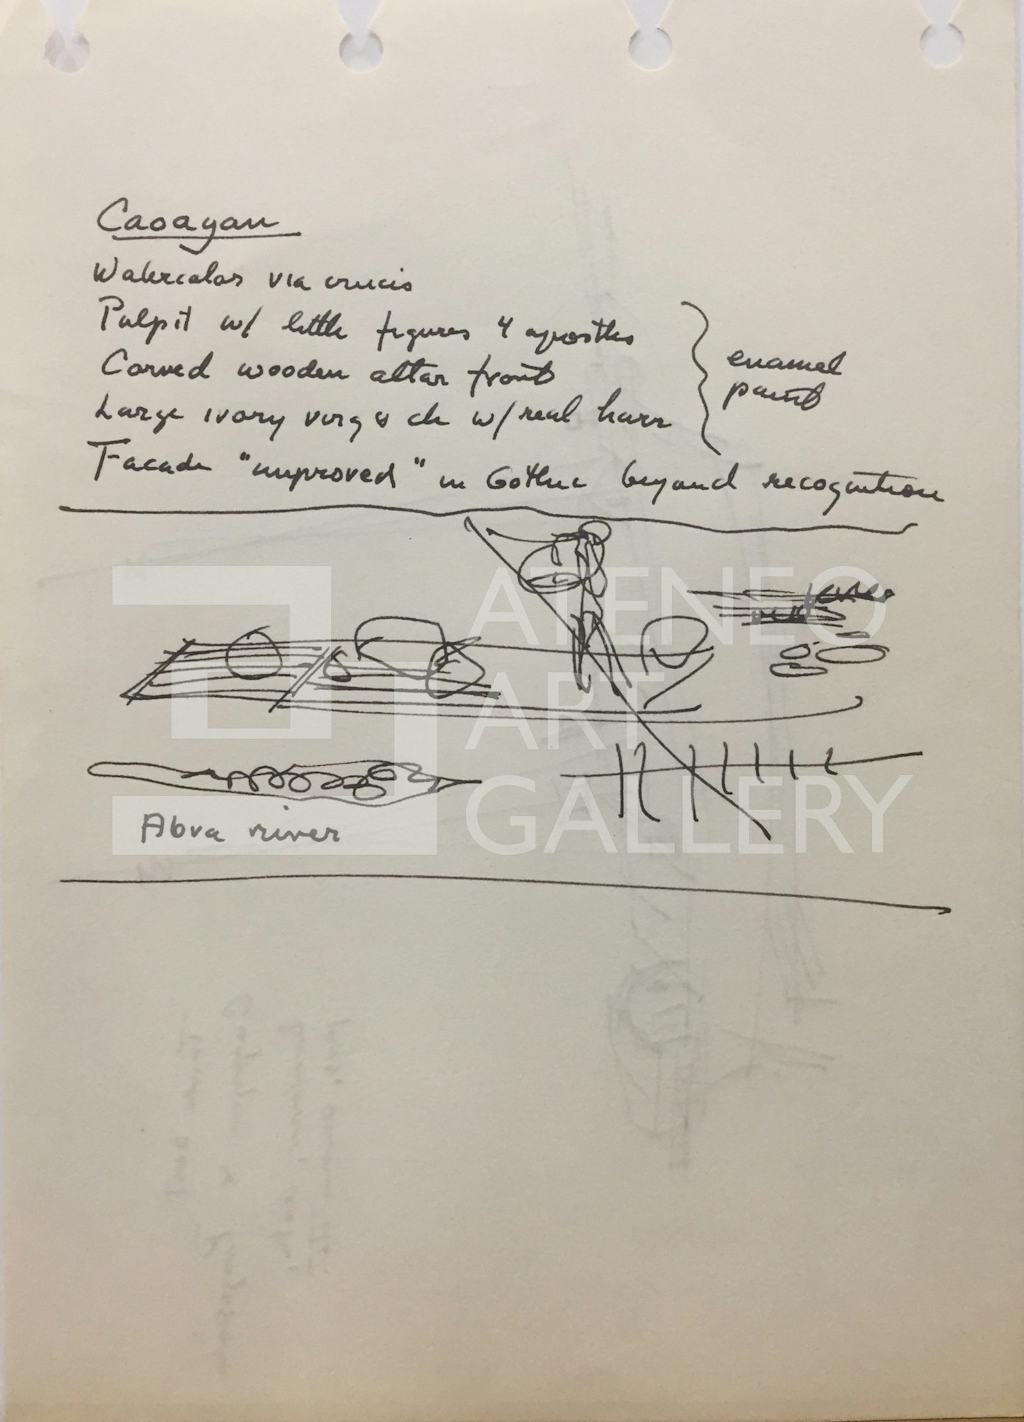 Caoayan
Watercolor via crucis
Pulpit w/ little figures 4 apostles
Carved wooden altar front
Large ivory virg & ch w/ real hair
enamel
paint
Facade "improved" in Gothic beyond recognition
Abra river
ATENEO
ART
GALLERY